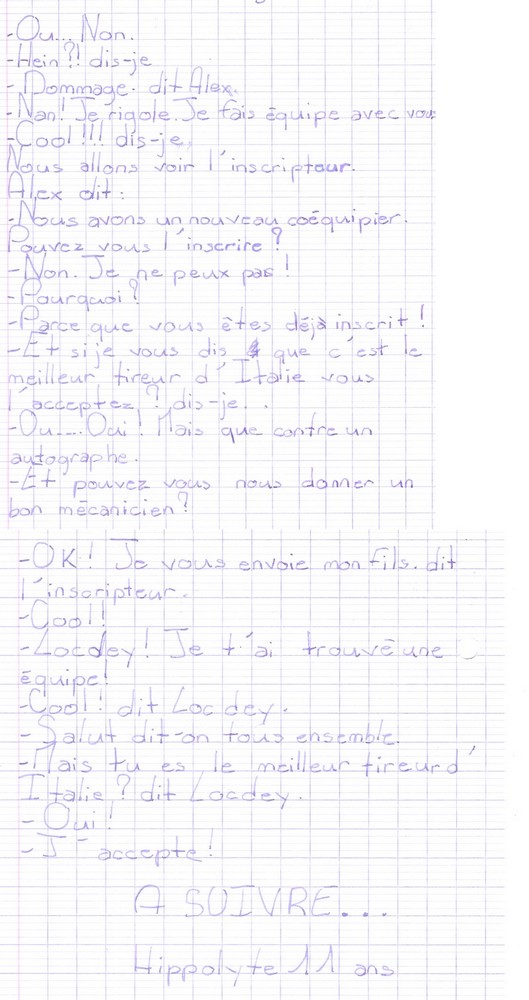 -Ou... Non.
-Hein?! dis-je
- Dommage. dit Alex.
-Nan! Je rigole. Je fais équipe avec vous
-Cool!!! dis-je.
Nous allons voir l'inscripteur.
Alex dit :
-Nous avons un nouveau coéquipier.
Pouvez vous l'inscrire ?
-Non. Je ne peux pas !
-Pourquoi ?
-Parce que vous êtes déjà inscrit !
-Et si je vous dis que c'est le
meilleur tireur d'Italie vous
l'acceptez ? dis-je...
-Ou.... Oui ! Mais que contre un
autographe.
-Et pouvez vous nous donner un
bon mécanicien ?
-OK ! Je vous envoie mon fils. dit
l'inscripteur.
-Cool !
-Locdey ! Je t'ai trouvé une
équipe!
-Cool ! dit Locdey.
- Salut dit-on tous ensemble.
-Mais tu es le meilleur tireur d'
Italie ? dit Locdey.
- Oui !
- J'accepte !
A SUIVRE...
Hippolyte 11 ans